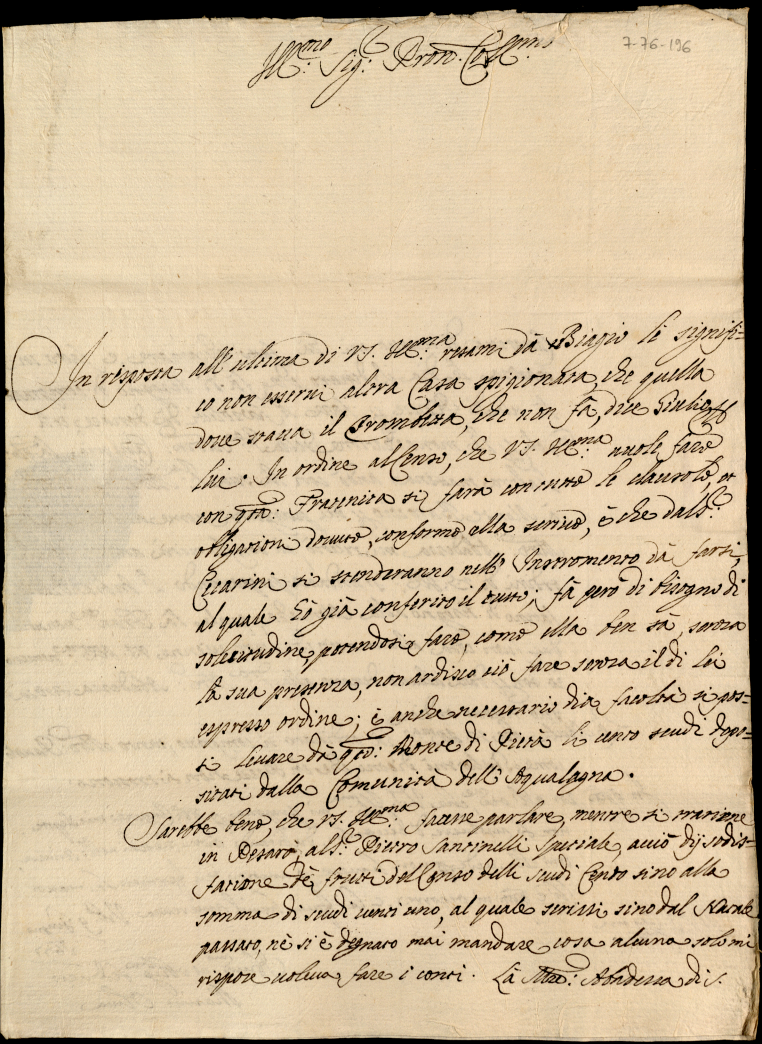 7-76-196
Ill.mo Sig.r Pron. Col.mo
In risposta all'ultima di VS. Ill.ma resami dà Biagio le signifi-
co non esservi altra Casa spigionata, che quella
doue staua il Trombetta, che non fà, dice Giulio
lui. In ordine al Censo, che VS. Ill.ma vuole fare
con q.sta: Fraternita si farà con tutte le clausole, et
obligationi douute, conforme ella scriue, e che dal S.r
Cecarini si stenderanno nell'Instromento dà farsi,
al quale hò già conferito il tutto; fà però di bisogno di
solecitudine, potendosi fare, come ella ben sà, senza
la sua presenza, non ardisco ciò fare senza il di lei
espresso ordine; è anche necessario dia facoltà si pos-
si leuare dà q.sto: Monte di Pietà li cento scudi depo-
sitati dalla Comunità dell'Aqualagna.
Sarebbe bene, che VS. Ill.ma facesse parlare, mentre si trattiene
in Pesaro, al S.r Pietro Santinelli Speciale, acciò dij sodis-
fatione dè frutti del Censo delli scudi Cento sino alla
somma di scudi venti uno, al quale scrissi sino dal Natale
passato, nè si è degnato mai mandare cosa alcuna solo mi
rispose uoleua fare i conti. La M.re: Abadessa di S.